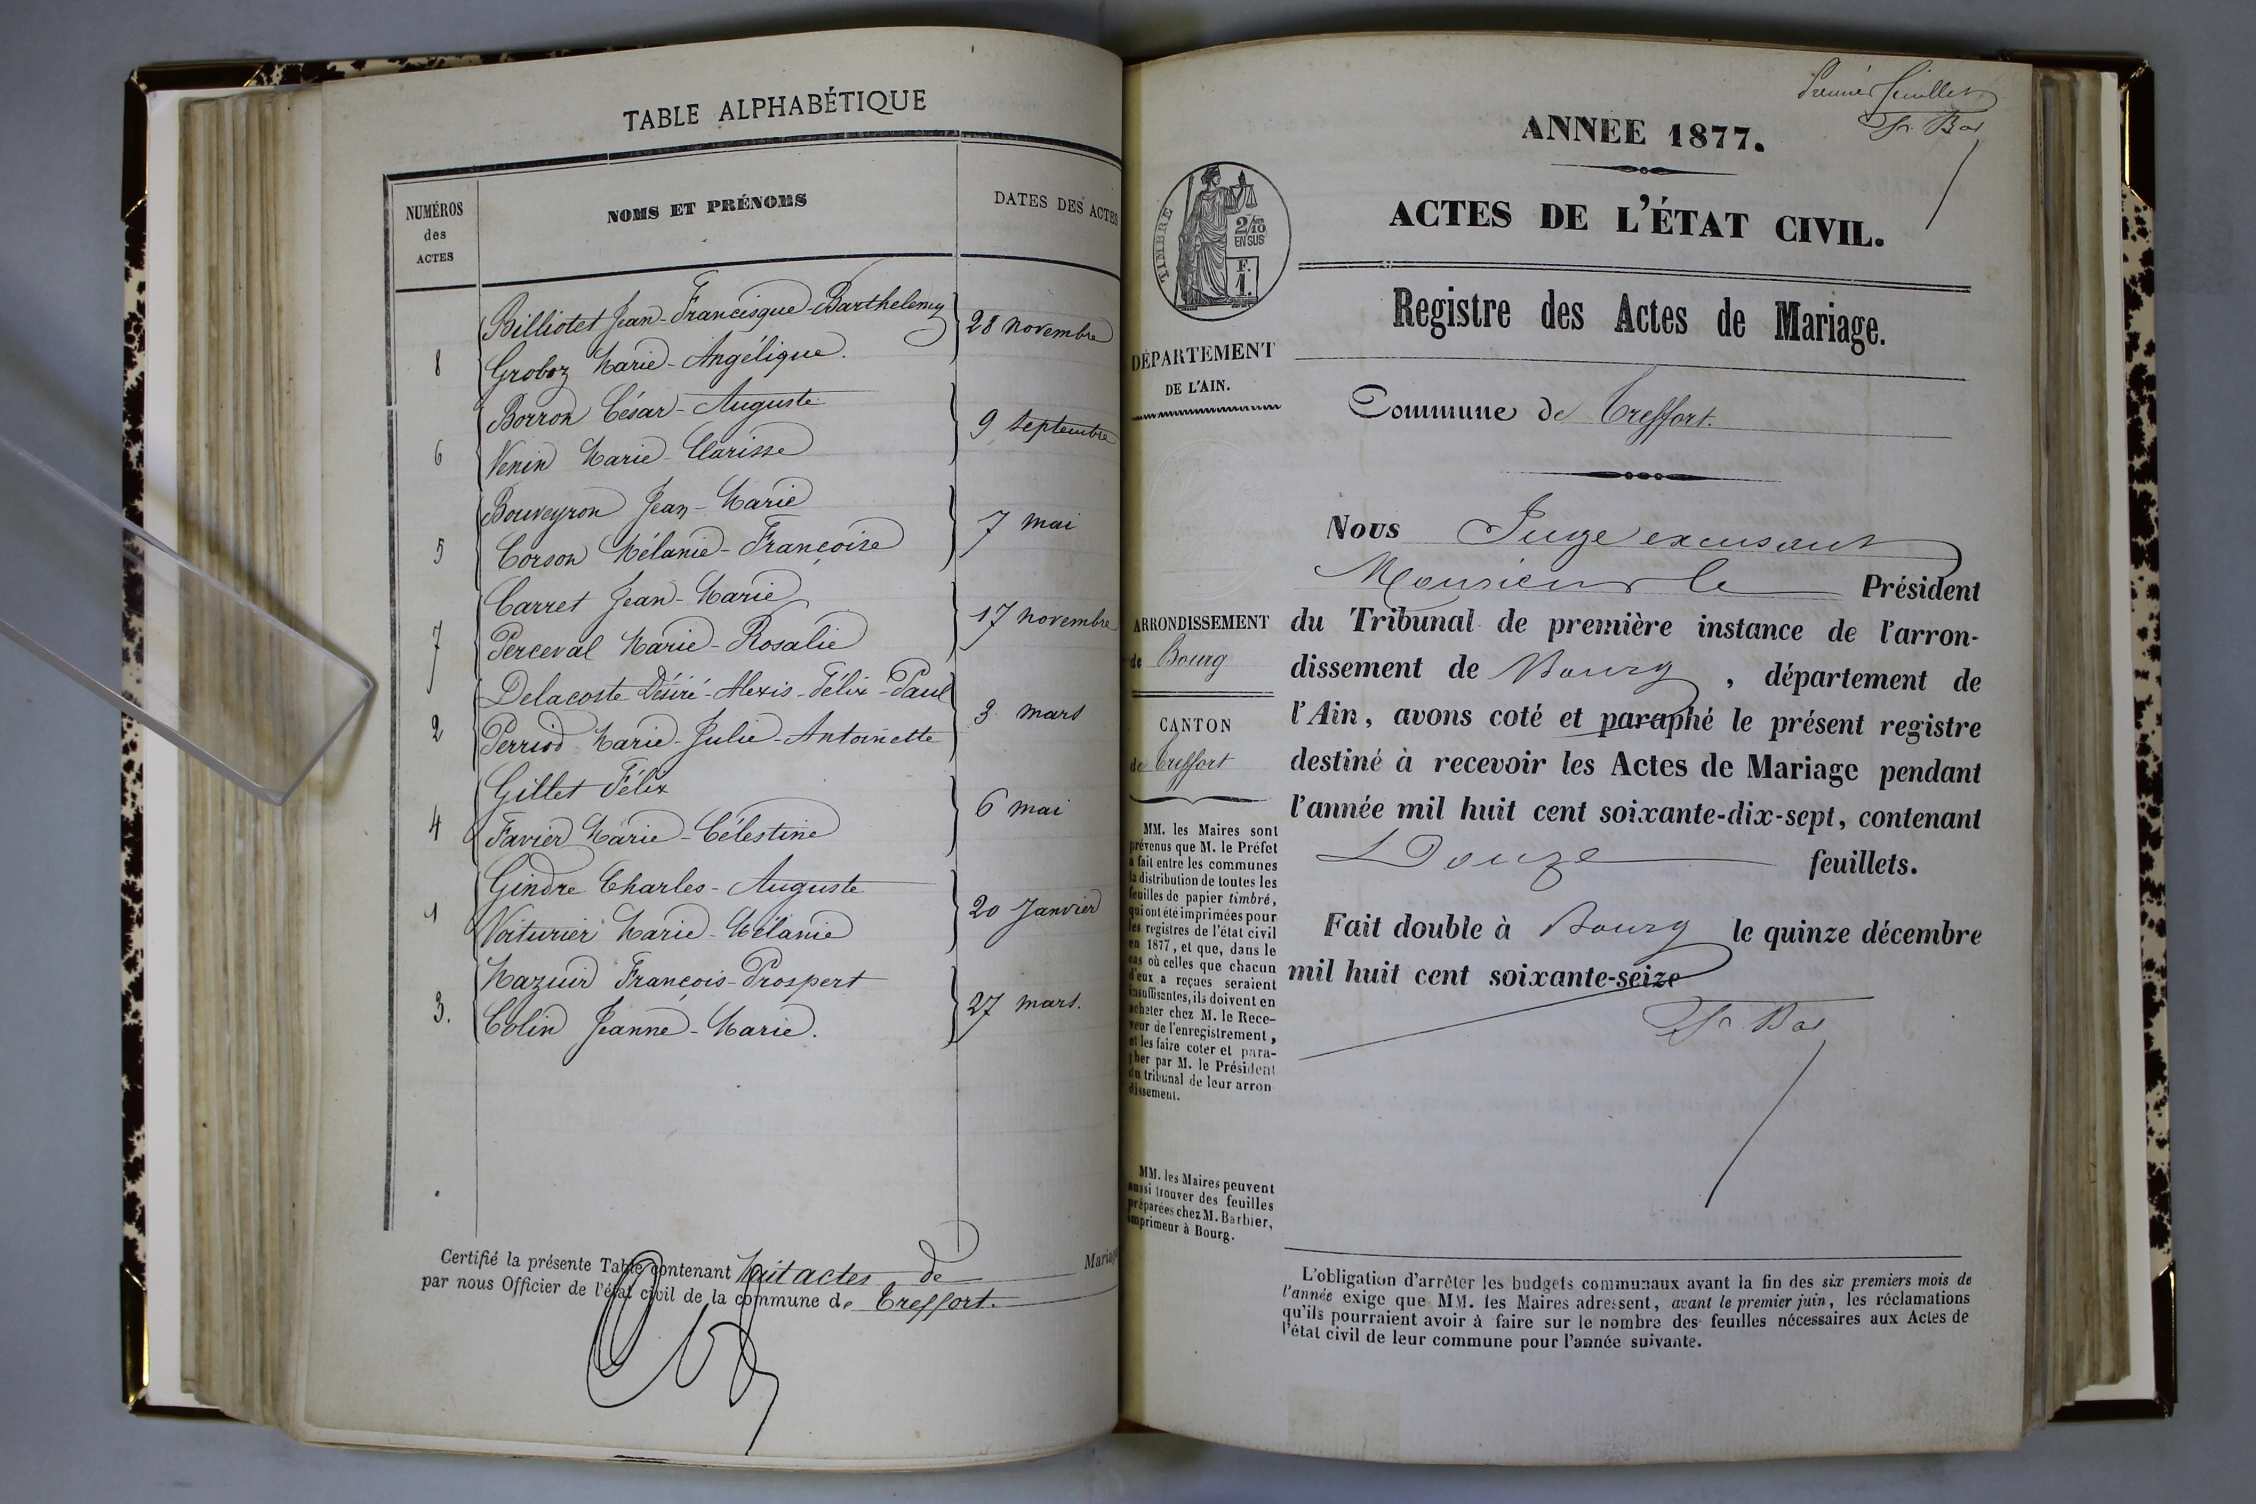 TABLE ALPHABÉTIQUE
NUMÉROS
des
ACTES
NOMS ET PRÉNOMS
DATES DES ACTES
Billiotet Jean-Francisque-Barthelemy
28 novembre
8
Groboz Marie-Angélique.
Borron César-Auguste
9 septembre
6
Venin Marie-Clarisse
Bouveyron Jean-Marie
7 mai
5
Corson Mélanie-Françoise
Carret Jean-Marie
17 novembre
7
Perceval Marie-Rosalie
Delacoste Désiré-Alexis-Félix-Paul
3 mars
2
Perriod Marie-Julie-Antoinette
Gillet Félix
6 mai
4
Favier Marie-Célestine
Gindre Charles-Auguste
20 Janvier
1
Voiturier Marie-Mélanie
Mazuir François-Prospert
27 mars.
3.
Colin Jeanne-Marie.
Certifié la présente Table contenant huit actes de Mariage
par nous Officier de l'état civil de la commune de Treffort.
Premier feuillet
ANNÉE 1877.
ACTES DE L'ÉTAT CIVIL.
TIMBRE
2/10
EN SUS
F.
1.
Registre des Actes de Mariage.
DÉPARTEMENT
DE L'AIN.
Commune de Treffort.
Nous Juge excusant
Monsieur le Président
du Tribunal de première instance de l'arron-
dissement de Bourg, département de
l'Ain, avons coté et paraphé le présent registre
destiné à recevoir les Actes de Mariage pendant
l'année mil huit cent soixante-dix-sept, contenant
Douze feuillets.
Fait double à Bourg le quinze décembre
mil huit cent soixante-seize
ARRONDISSEMENT
de Bourg
CANTON
de Treffort
MM. les Maires sont
prévenus que M. le Préfet
a fait entre les communes
la distribution de toutes les
feuilles de papier timbré,
qui ont été imprimées pour
les registres de l'état civil
en 1877, et que, dans le
cas où celles que chacun
d'eux a reçues seraient
insuffisantes, ils doivent en
acheter chez M. le Rece-
veur de l'enregistrement,
et les faire coter et para-
pher par M. le Président
du tribunal de leur arron
dissement.
MM. les Maires peuvent
aussi trouver des feuilles
préparées chez M. Barbier,
imprimeur à Bourg.
L'obligation d'arrêter les budgets communaux avant la fin des six premiers mois de
l'année exige que MM. les Maires adressent, avant le premier juin, les réclamations
qu'ils pourraient avoir à faire sur le nombre des feuilles nécessaires aux Actes de
l'état civil de leur commune pour l'année suivante.